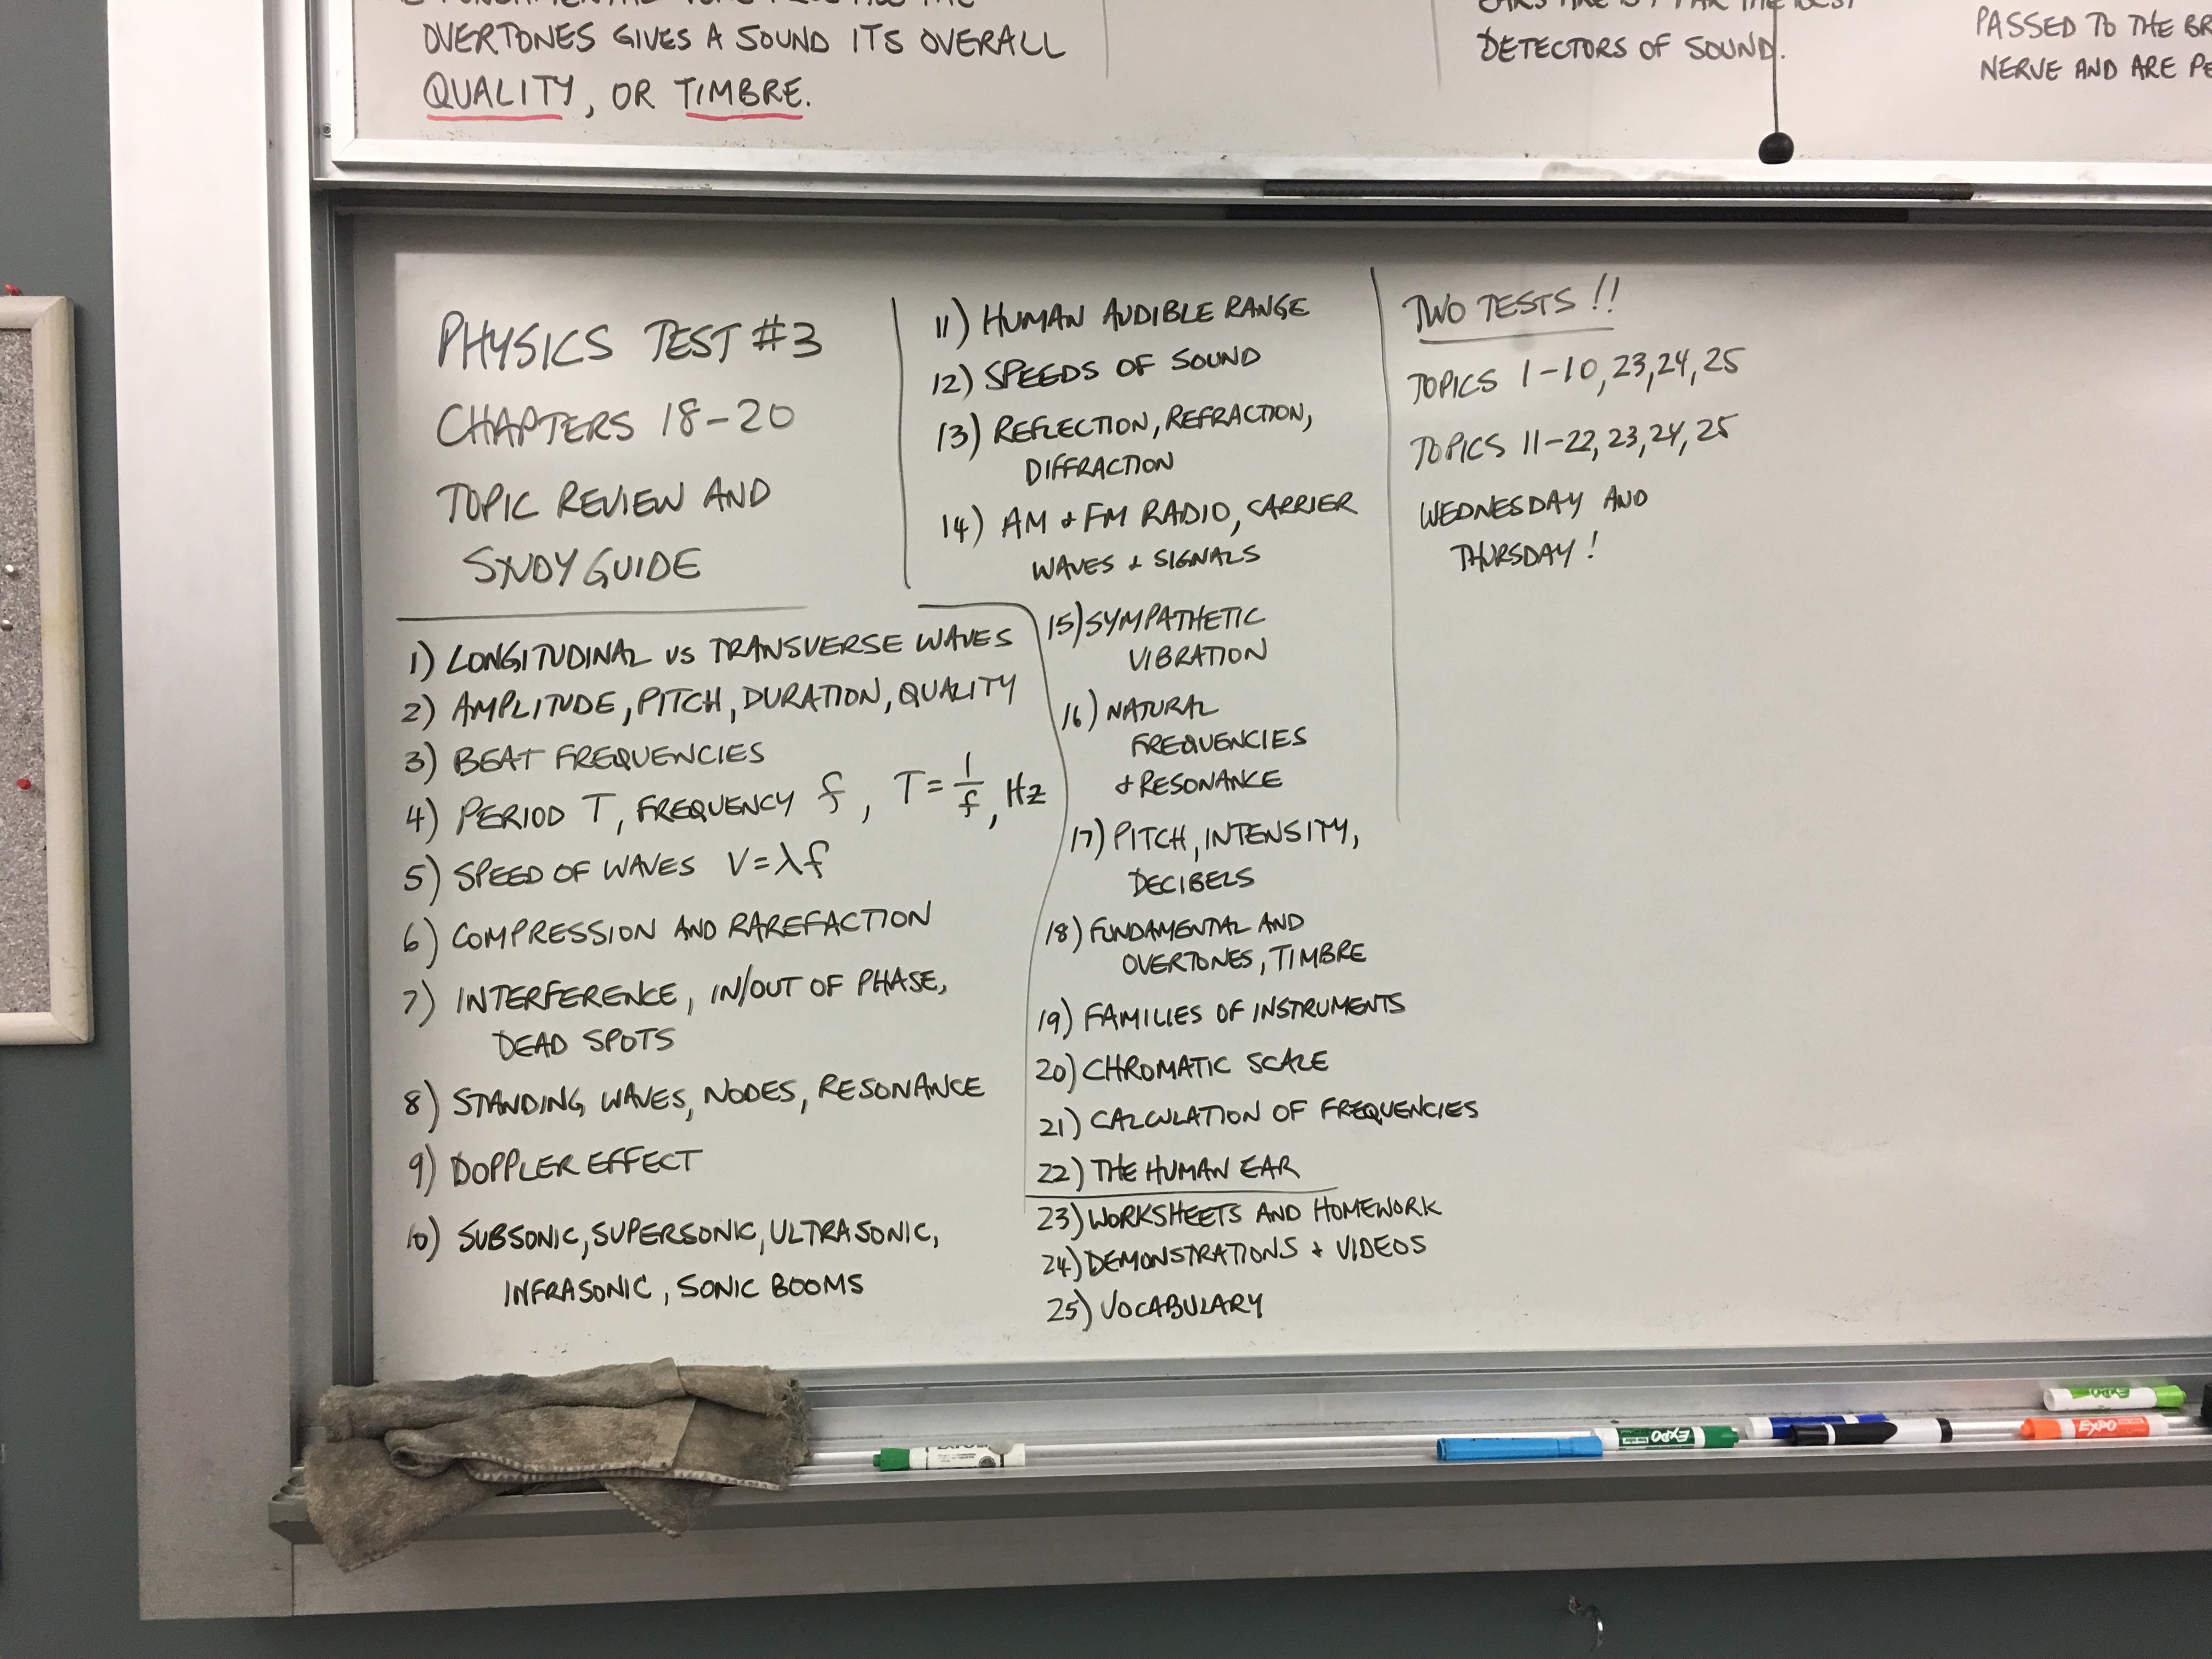 OVERTONES GIVES A SOUND ITS OVERALL
QUALITY, OR TIMBRE.
DETECTORS OF SOUND.
PASSED TO THE
NERVE AND ARE
PHYSICS TEST #3
CHAPTERS 18-20
TOPIC REVIEW AND
STUDY GUIDE
1) LONGITUDINAL VS TRANSVERSE WAVES
2) AMPLITUDE, PITCH, DURATION, QUALITY
3) BEAT FREQUENCIES
4) PERIOD T, FREQUENCY f, T = 1/f, Hz
5) SPEED OF WAVES V=λf
6) COMPRESSION AND RAREFACTION
7) INTERFERENCE, IN/OUT OF PHASE,
DEAD SPOTS
8) STANDING WAVES, NODES, RESONANCE
9) DOPPLER EFFECT
10) SUBSONIC, SUPERSONIC, ULTRASONIC,
INFRASONIC, SONIC BOOMS
11) HUMAN AUDIBLE RANGE
12) SPEEDS OF SOUND
13) REFLECTION, REFRACTION,
DIFFRACTION
14) AM & FM RADIO, CARRIER
WAVES & SIGNALS
15) SYMPATHETIC
VIBRATION
16) NATURAL
FREQUENCIES
& RESONANCE
17) PITCH, INTENSITY,
DECIBELS
18) FUNDAMENTAL AND
OVERTONES, TIMBRE
19) FAMILIES OF INSTRUMENTS
20) CHROMATIC SCALE
21) CALCULATION OF FREQUENCIES
22) THE HUMAN EAR
23) WORKSHEETS AND HOMEWORK
24) DEMONSTRATIONS & VIDEOS
25) VOCABULARY
TWO TESTS!!
TOPICS 1-10, 23, 24, 25
TOPICS 11-22, 23, 24, 25
WEDNESDAY AND
THURSDAY!
EXPO
EXPO
EXPO